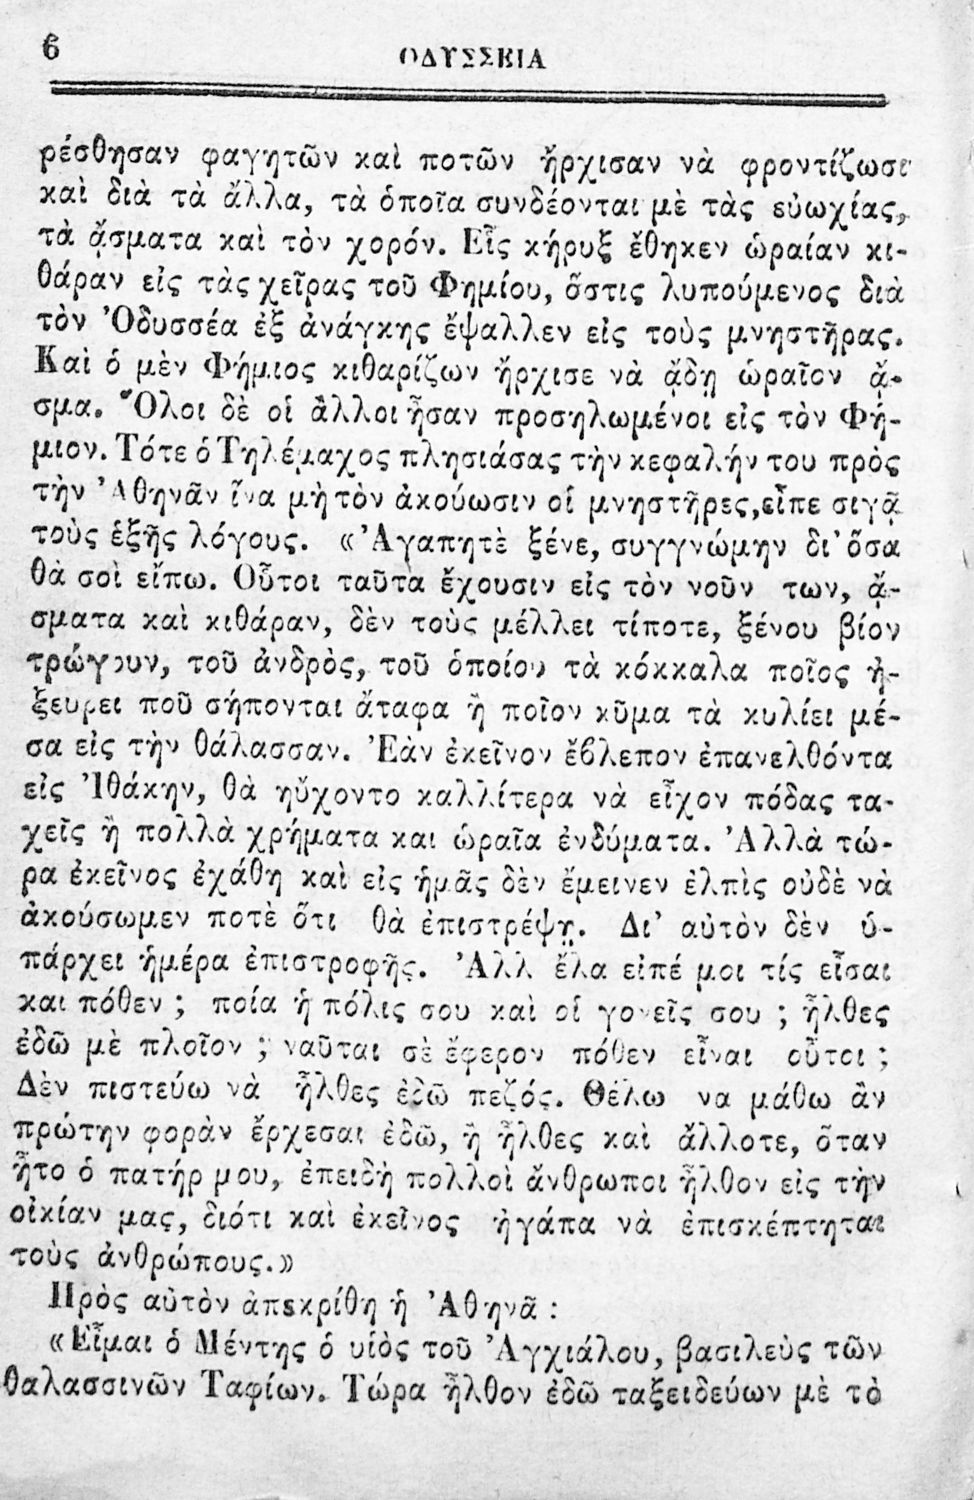 6
ΟΔΥΣΣΕΙΑ
ρέσθησαν φαγητῶν καὶ ποτῶν ἤρχισαν νὰ φροντίζωσι
καὶ διὰ τὰ ἄλλα, τὰ ὁποῖα συνδέονται μὲ τὰς εὐωχίας,
τὰ ᾄσματα καὶ τὸν χορόν. Εἷς κήρυξ ἔθηκεν ὡραίαν κι-
θάραν εἰς τὰς χεῖρας τοῦ Φημίου, ὅστις λυπούμενος διὰ
τὸν Ὀδυσσέα ἐξ ἀνάγκης ἔψαλλεν εἰς τοὺς μνηστῆρας.
Καὶ ὁ μὲν Φήμιος κιθαρίζων ἤρχισε νὰ ᾄδῃ ὡραῖον ᾆ-
σμα. Ὅλοι δὲ οἱ ἄλλοι ἦσαν προσηλωμένοι εἰς τὸν Φή-
μιον. Τότε ὁ Τηλέμαχος πλησιάσας τὴν κεφαλήν του πρὸς
τὴν Ἀθηνᾶν ἵνα μὴ τὸν ἀκούωσιν οἱ μνηστῆρες, εἶπε σιγᾷ
τοὺς ἑξῆς λόγους. «Ἀγαπητὲ ξένε, συγγνώμην δι' ὅσα
θὰ σοὶ εἴπω. Οὗτοι ταῦτα ἔχουσιν εἰς τὸν νοῦν των, ᾄ-
σματα καὶ κιθάραν, δὲν τοὺς μέλλει τίποτε, ξένου βίον
τρώγουν, τοῦ ἀνδρὸς, τοῦ ὁποίου τὰ κόκκαλα ποῖος ἠ-
ξεύρει ποῦ σήπονται ἄταφα ἢ ποῖον κῦμα τὰ κυλίει μέ-
σα εἰς τὴν θάλασσαν. Ἐὰν ἐκεῖνον ἔβλεπον ἐπανελθόντα
εἰς Ἰθάκην, θὰ ηὔχοντο καλλίτερα νὰ εἶχον πόδας τα-
χεῖς ἢ πολλὰ χρήματα και ὡραῖα ἐνδύματα. Ἀλλὰ τώ-
ρα ἐκεῖνος ἐχάθη καὶ εἰς ἡμᾶς δὲν ἔμεινεν ἐλπὶς οὐδὲ νὰ
ἀκούσωμεν ποτὲ ὅτι θὰ ἐπιστρέψῃ. Δι' αὐτὸν δὲν ὑ-
πάρχει ἡμέρα ἐπιστροφῆς. Ἀλλ ἔλα εἰπέ μοι τίς εἶσαι
και πόθεν ; ποία ἡ πόλις σου καὶ οἱ γονεῖς σου ; ἦλθες
ἐδῶ μὲ πλοῖον ; ναῦται σὲ ἔφερον πόθεν εἶναι οὗτοι ;
Δὲν πιστεύω νὰ ἦλθες ἐδῶ πεζός. Θέλω να μάθω ἂν
πρώτην φορὰν ἔρχεσαι ἐδῶ, ἢ ἦλθες καὶ ἄλλοτε, ὅταν
ἦτο ὁ πατήρ μου, ἐπειδὴ πολλοὶ ἄνθρωποι ἦλθον εἰς τὴν
οἰκίαν μας, διότι καὶ ἐκεῖνος ἠγάπα νὰ ἐπισκέπτηται
τοὺς ἀνθρώπους.»
Πρὸς αὐτὸν ἀπεκρίθη ἡ Ἀθηνᾶ :
«Εἶμαι ὁ Μέντης ὁ υἱὸς τοῦ Ἀγχιάλου, βασιλεὺς τῶν
θαλασσινῶν Ταφίων. Τώρα ἦλθον ἐδῶ ταξειδεύων μὲ τὸ